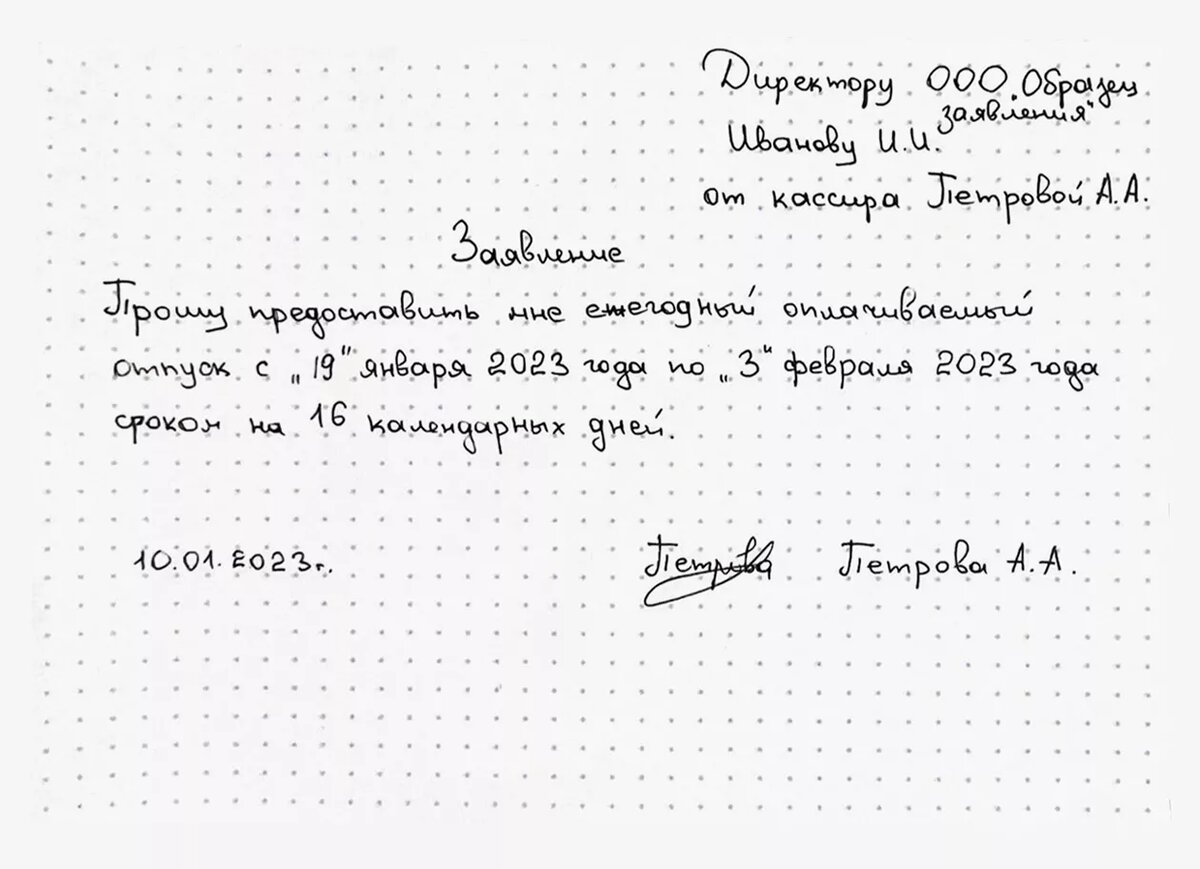 Директору ООО „Образец
заявления"
Иванову И.И.
от кассира Петровой А.А.
Заявление
Прошу предоставить мне ежегодный оплачиваемый
отпуск с „19" января 2023 года по „3" февраля 2023 года
сроком на 16 календарных дней.
10.01.2023г. Петрова Петрова А.А.